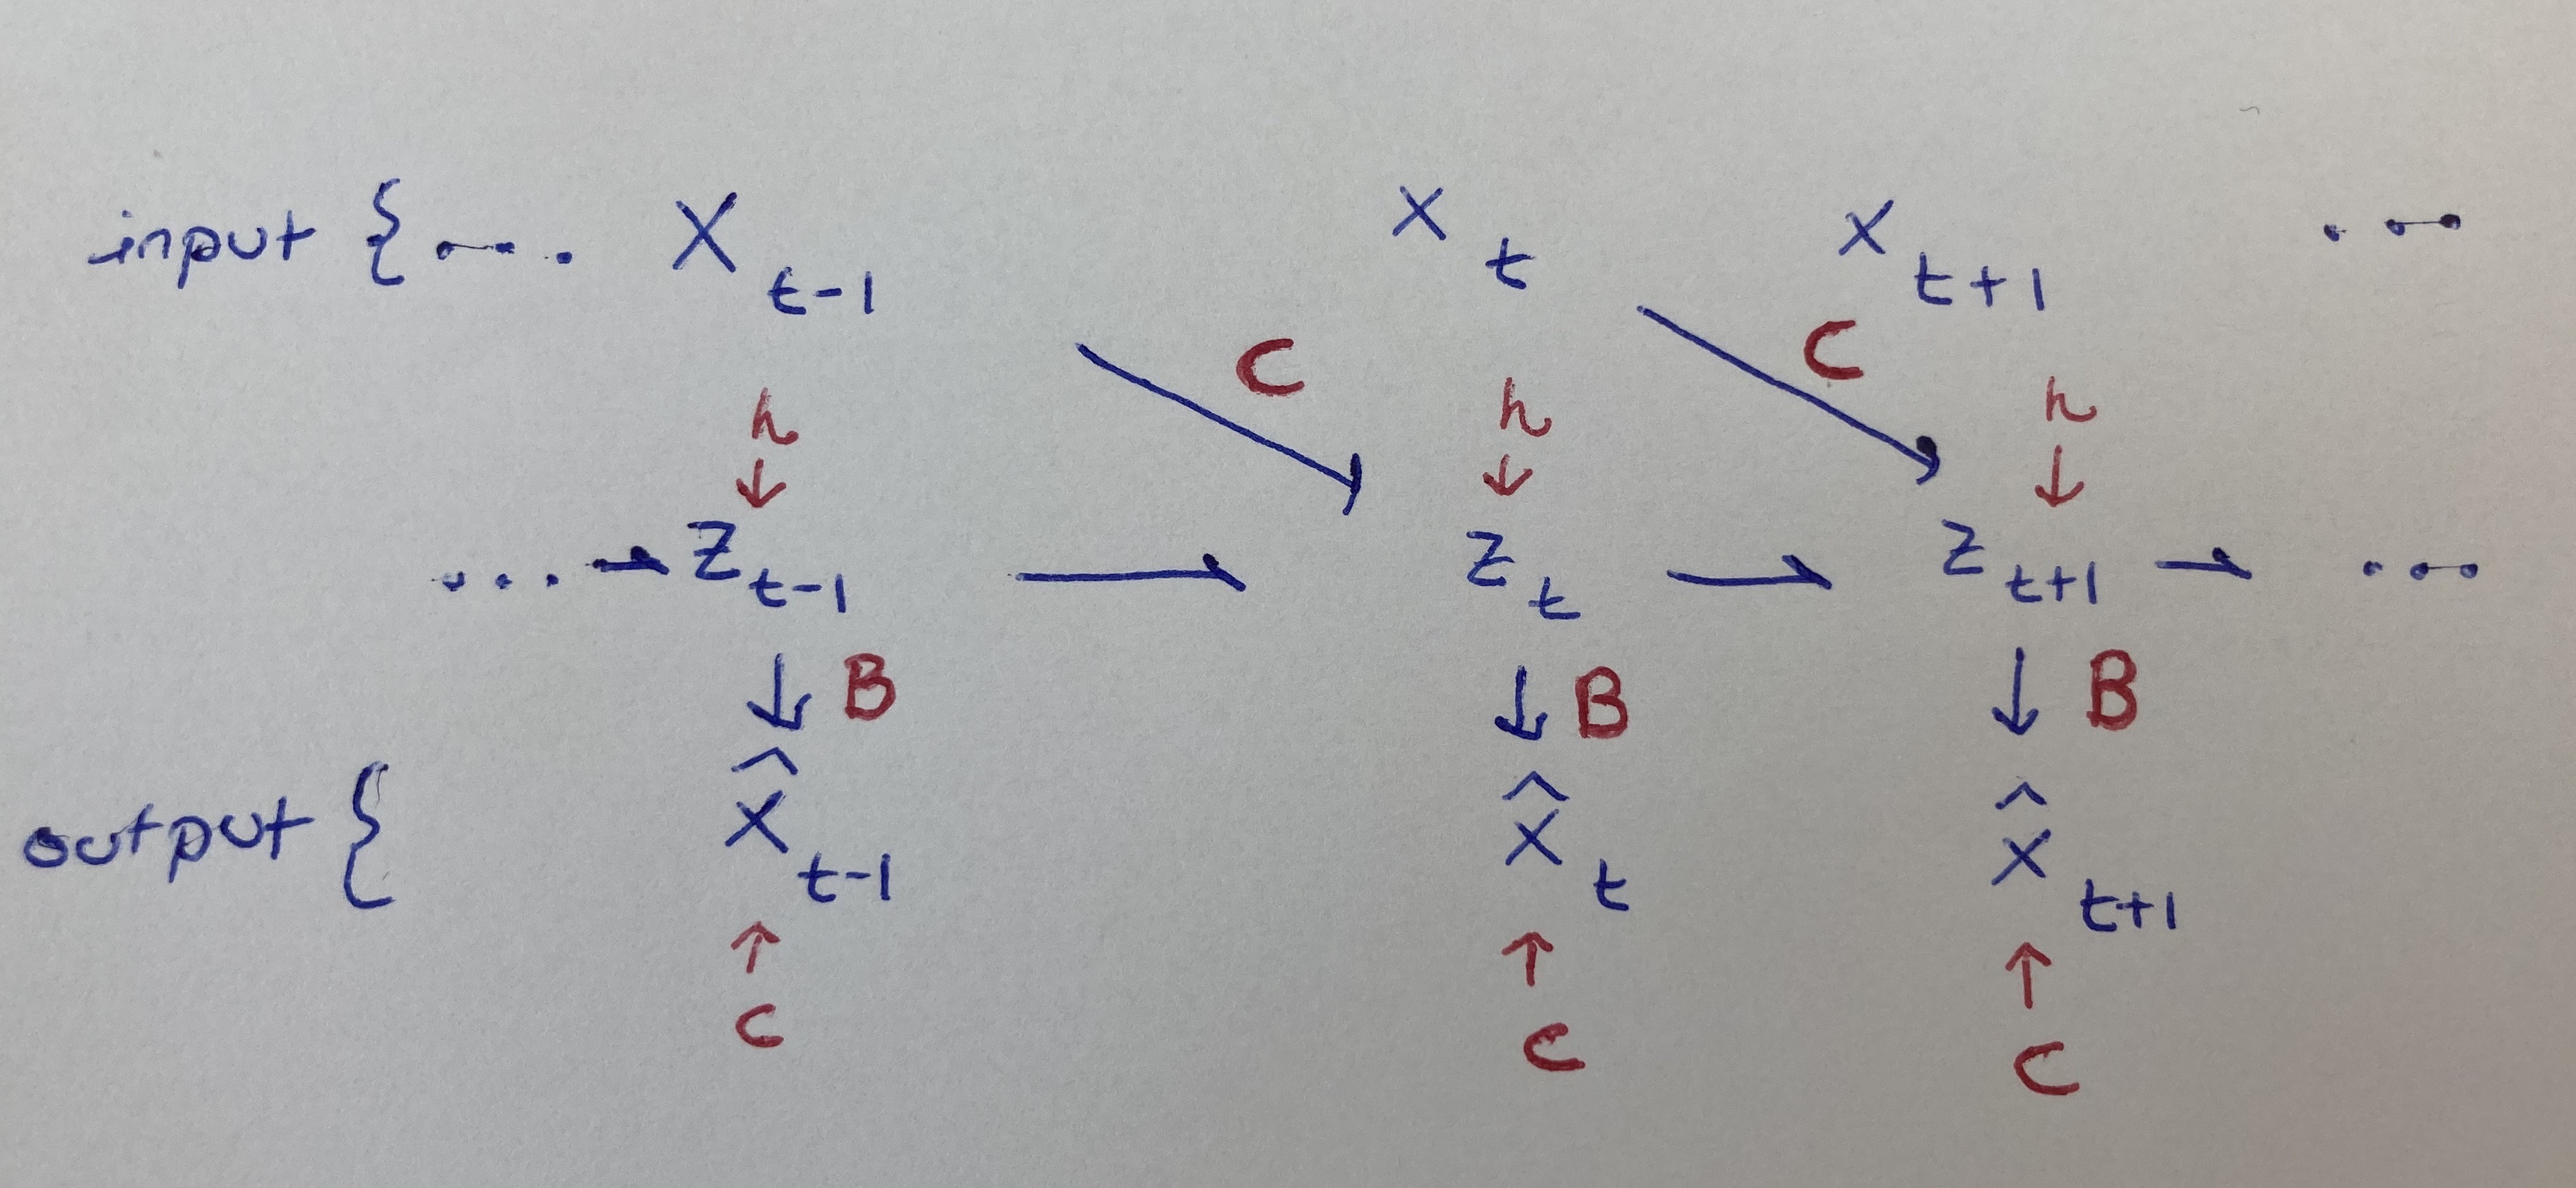 input { ... X t-1 x t x t+1 ...
C C
h h h
↓ ↓ ↓
... → z t-1 → z t → z t+1 → ...
↓ B ↓ B ↓ B
output { x̂ t-1 x̂ t x̂ t+1
↑ ↑ ↑
c c c